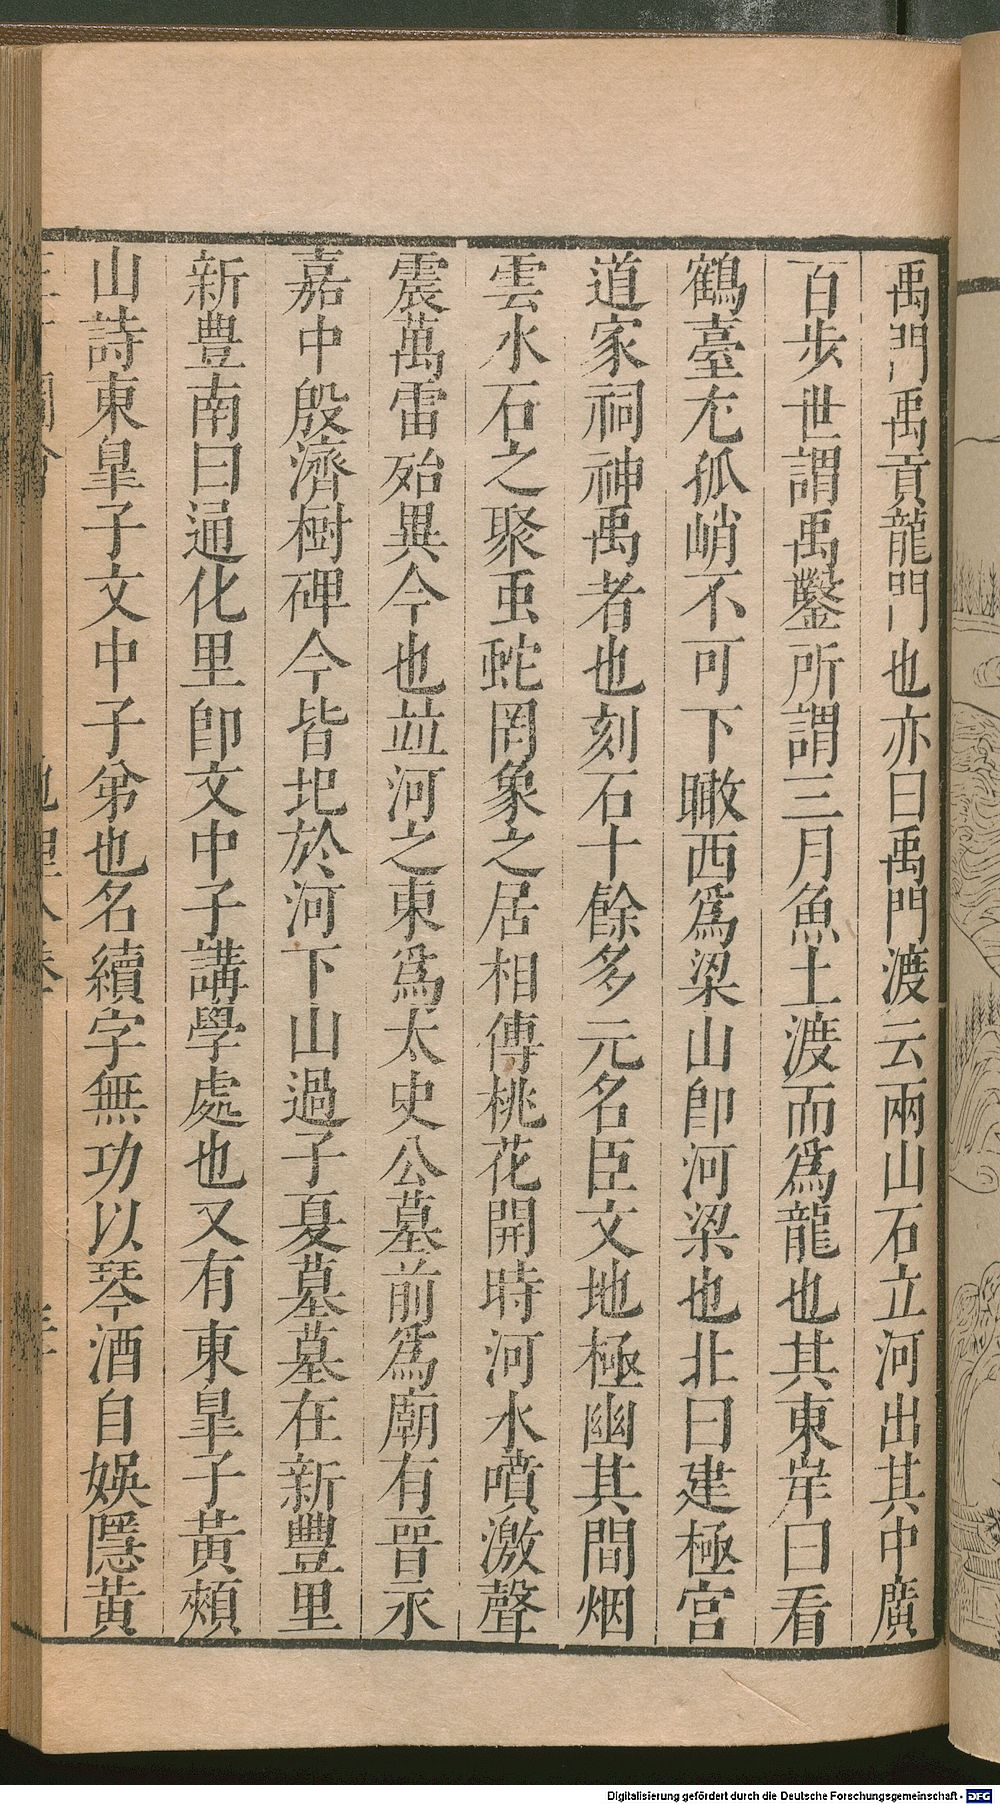 禹門禹貢龍門也亦曰禹門渡云兩山石立河出其中廣
百步世謂禹鑿所謂三月魚上渡而爲龍也其東岸曰看
鶴臺尤孤峭不可下瞰西爲梁山卽河梁也北曰建極宮
道家祠神禹者也刻石十餘多元名臣文地極幽其間烟
雲水石之聚虫蛇罔象之居相傳桃花開時河水噴激聲
震萬雷殆異今也並河之東爲太史公墓前爲廟有晉永
嘉中殷濟樹碑今皆圮於河下山過子夏墓墓在新豐里
新豊南曰通化里卽文中子講學處也又有東臯子黃頰
山詩東臯子文中子弟也名績字無功以琴酒自娛隱黃
Digitalisierung gefördert durch die Deutsche Forschungsgemeinschaft - DFG